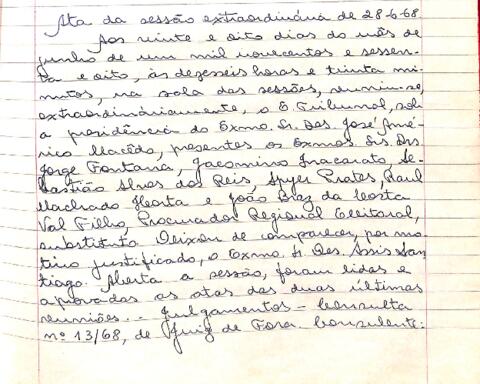 Ata da sessão extraordinária de 28-6-68.
Aos vinte e oito dias do mês de
junho de um mil novecentos e sessen-
ta e oito, às dezesseis horas e trinta mi-
nutos, na sala das sessões, reuniu-se,
extraordinàriamente, o E. Tribunal, sob
a presidência do Exmo. Sr. Des. José Amé-
rico Macêdo, presentes os Exmos. Srs. Drs.
Jorge Fontana, Jacomino Inacarato, Se-
bastião Alves dos Reis, Spyer Prates, Raul
Machado Horta e João Braz da Costa
Val Filho, Procurador Regional Eleitoral,
substituto. Deixou de comparecer, por mo-
tivo justificado, o Exmo. Sr. Des. Assis San-
tiago. Aberta a sessão, foram lidas e
aprovadas as atas das duas últimas
reuniões. - Julgamentos - Consulta
nº 13/68, de Juiz de Fora. Consulente: